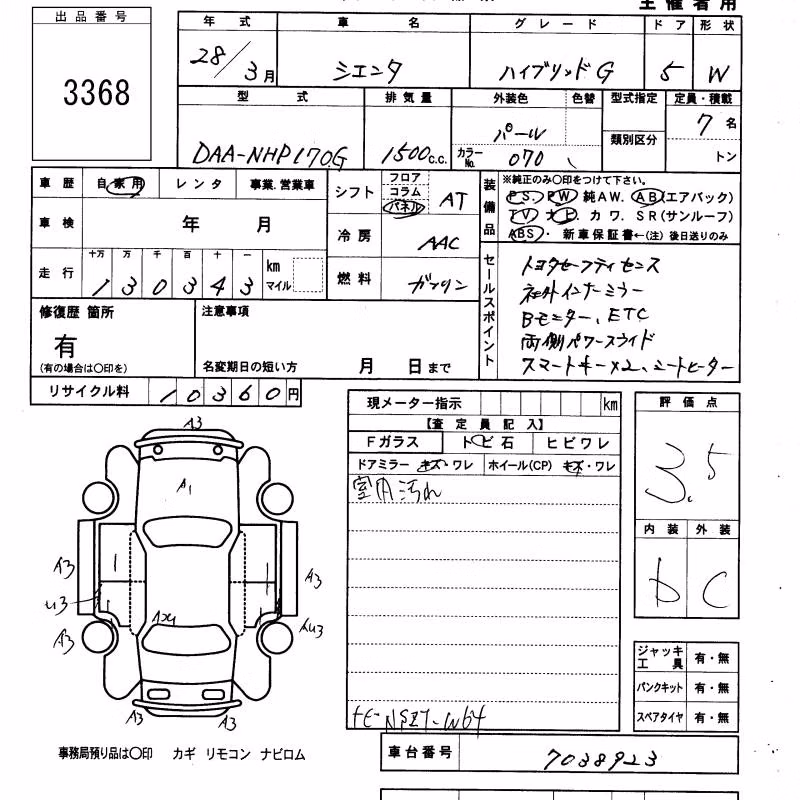 主催者用
出品番号
3368
年式 車名 グレード ドア 形状
28/3月 シエンタ ハイブリッドG 5 W
型式 排気量 外装色 色替 型式指定 定員・積載
DAA-NHP170G 1500c.c. パール 7名
カラーNo. 070 類別区分 トン
車歴 自家用 レンタ 事業.営業車
シフト フロア コラム パネル AT
車検 年 月
冷房 AAC
走行 十万 万 千 百 十 一 km マイル
130343
燃料 ガソリン
装備品
※純正のみ○印をつけて下さい。
PS. PW 純AW. AB(エアバック)
TV ナビ カワ. SR(サンルーフ)
ABS・ 新車保証書←(注) 後日送りのみ
セールスポイント
トヨタセーフティセンス
社外インナーミラー
Bモニター、ETC
両側パワースライド
スマートキー×2、シートヒーター
修復歴 箇所
有
(有の場合は○印を)
注意事項
名変期日の短い方 月 日まで
リサイクル料 10360円
現メーター指示 km
【査定員記入】
Fガラス トビ石 ヒビワレ
ドアミラー キズ・ワレ ホイール(CP) キズ・ワレ
室内汚れ
評価点
3.5
内装 外装
b C
A3
A1
A3 A3
U3
A3 AU3
A3 A3
ジャッキ工具 有・無
パンクキット 有・無
スペアタイヤ 有・無
事務局預り品は○印 カギ リモコン ナビロム
車台番号 7038923